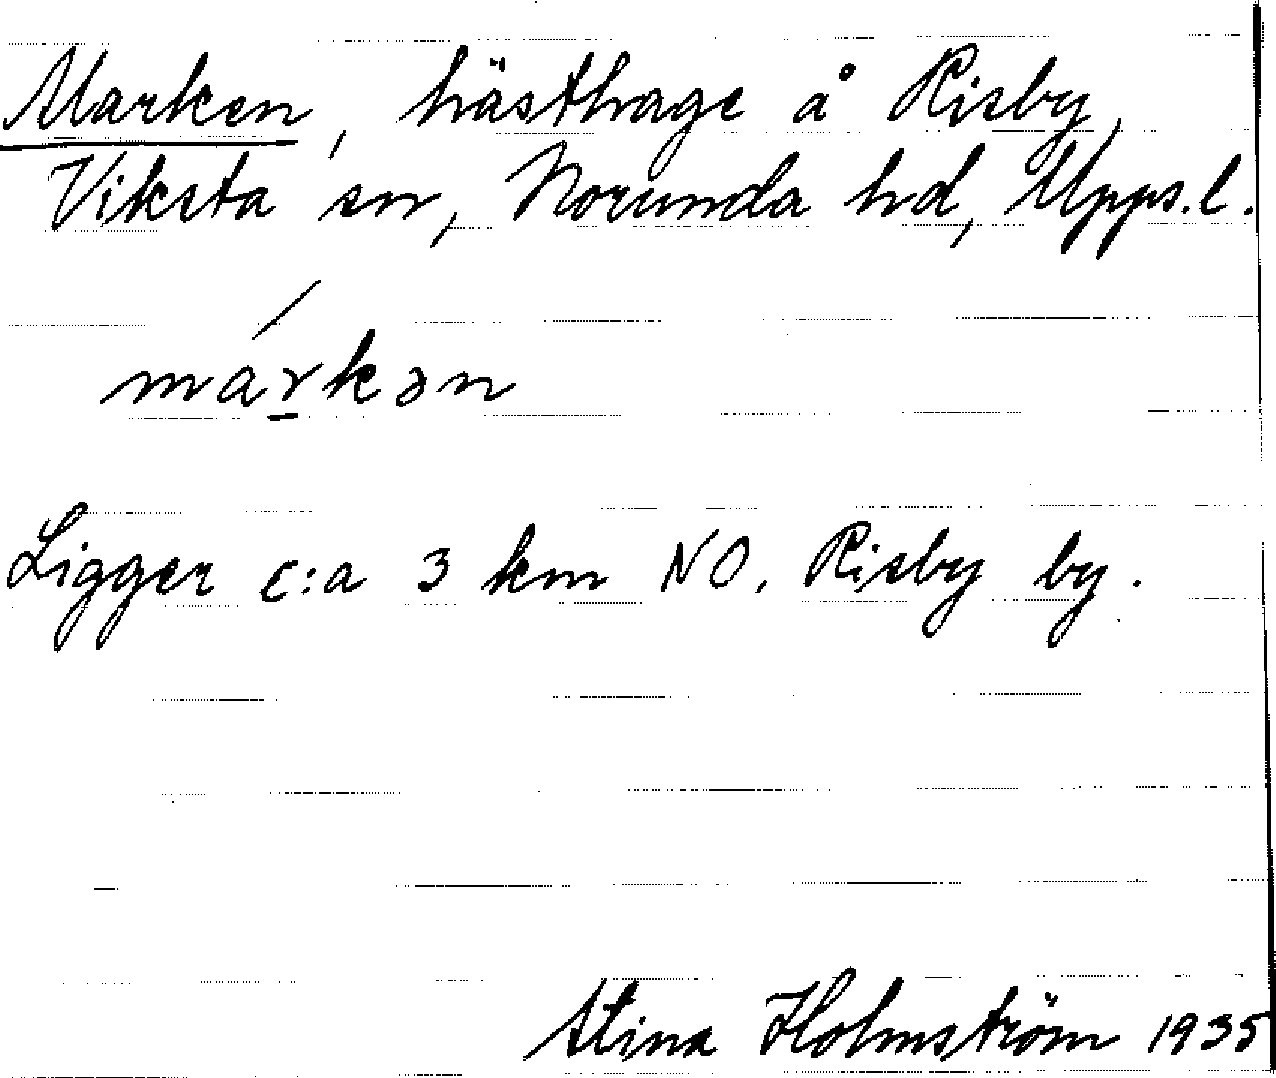 Marken, hästhage å Risby,
Viksta sn, Norunda hd, Upps.l.
márkən
Ligger c:a 3 km NO. Risby by.
Stina Holmström 1935